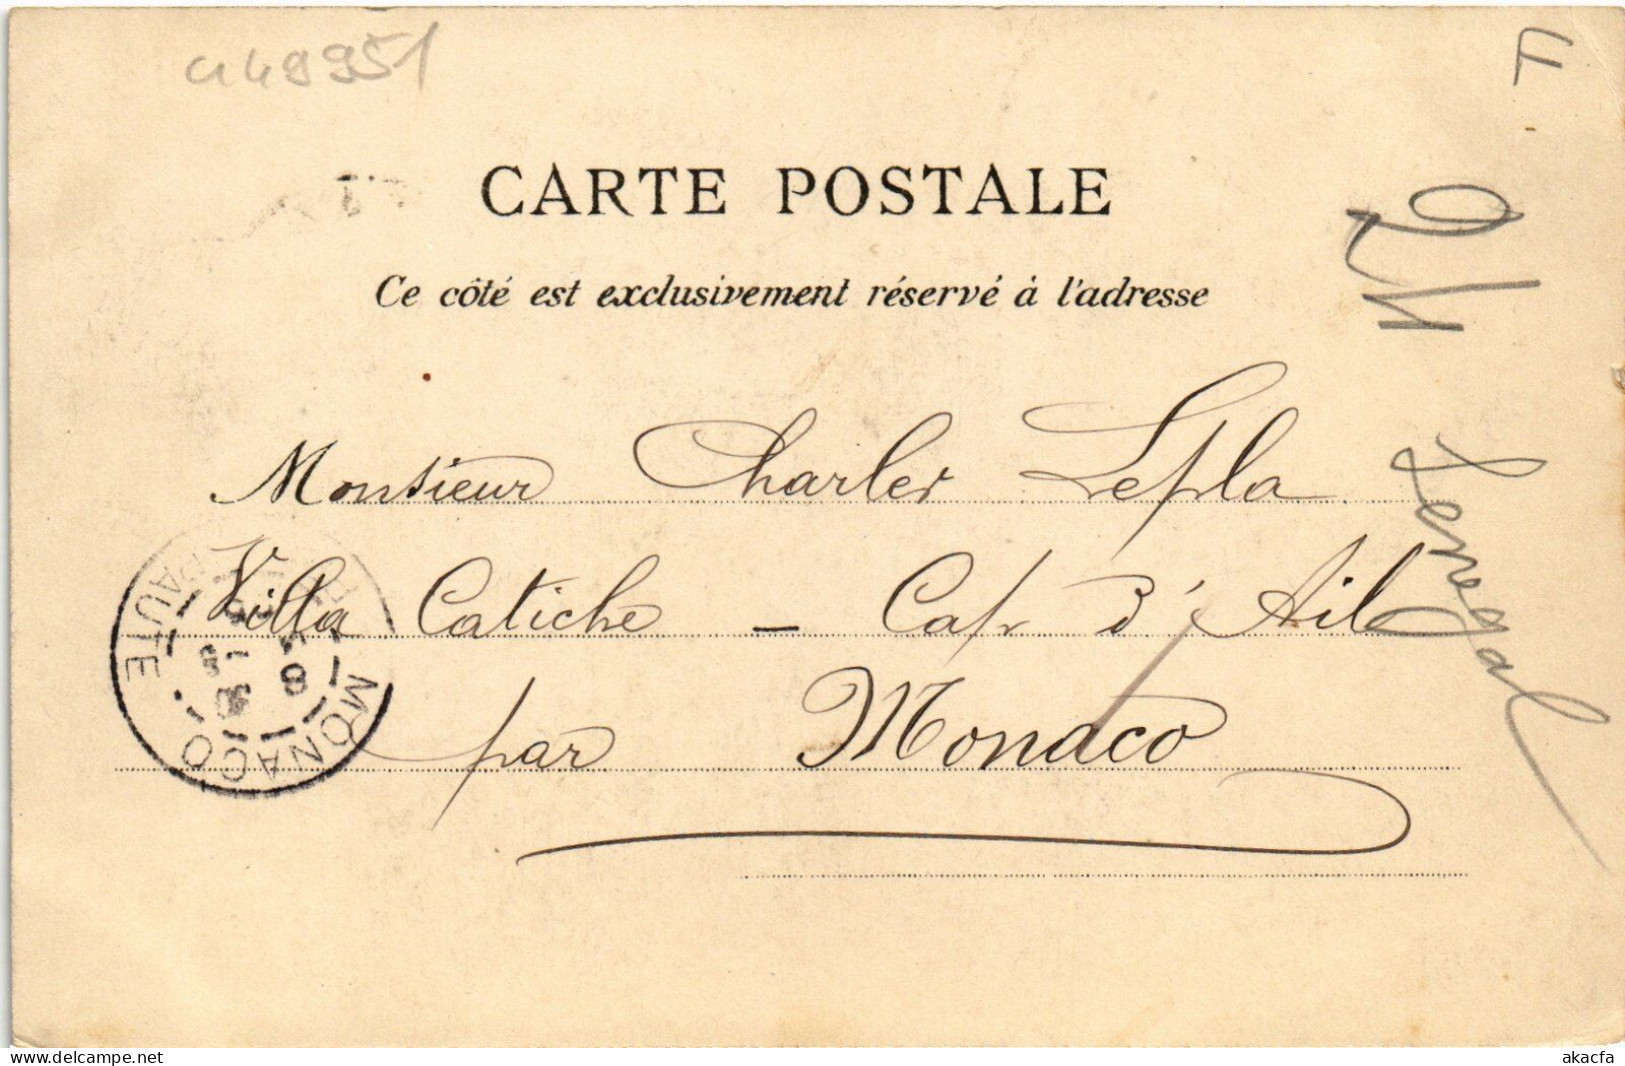 a48951
F
CARTE POSTALE
Ce côté est exclusivement réservé à l'adresse
Monsieur Charles Lepla
Villa Catiche - Cap d'Ail
par Monaco
MONACO
Senegal
akacfa